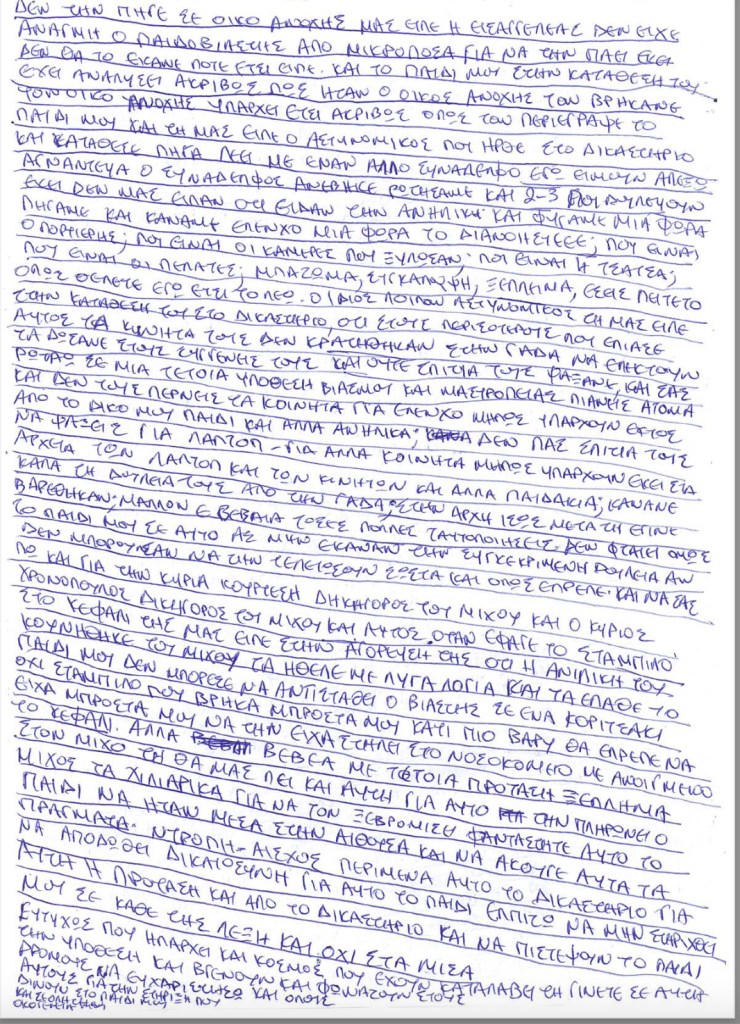 ΔΕΝ ΤΗΝ ΠΗΓΕ ΣΕ ΟΙΚΟ ΑΝΟΧΗΣ ΜΑΣ ΕΙΠΕ Η ΕΙΣΑΓΓΕΛΕΑΣ ΔΕΝ ΕΙΧΕ
ΑΝΑΓΚΗ Ο ΠΑΙΔΟΒΙΑΣΤΗΣ ΑΠΟ ΜΙΚΡΟΠΟΣΑ ΓΙΑ ΝΑ ΤΗΝ ΠΑΕΙ ΕΚΕΙ
ΔΕΝ ΘΑ ΤΟ ΕΚΑΝΕ ΠΟΤΕ ΕΤΣΙ ΕΙΠΕ. ΚΑΙ ΤΟ ΠΑΙΔΙ ΜΟΥ ΣΤΗΝ ΚΑΤΑΘΕΣΗ ΤΟΥ
ΕΧΕΙ ΑΝΑΛΥΣΕΙ ΑΚΡΙΒΟΣ ΠΩΣ ΗΤΑΝ Ο ΟΙΚΟΣ ΑΝΟΧΗΣ ΤΟΝ ΒΡΗΚΑΝΕ
ΤΟΝ ΟΙΚΟ ΑΝΟΧΗΣ ΥΠΑΡΧΕΙ ΕΤΣΙ ΑΚΡΙΒΟΣ ΟΠΩΣ ΤΟΝ ΠΕΡΙΕΓΡΑΨΕ ΤΟ
ΠΑΙΔΙ ΜΟΥ ΚΑΙ ΤΗ ΜΑΣ ΕΙΠΕ Ο ΑΣΤΥΝΟΜΙΚΟΣ ΠΟΥ ΗΡΘΕ ΣΤΟ ΔΙΚΑΣΤΗΡΙΟ
ΚΑΙ ΚΑΤΑΘΕΣΕ ΠΗΓΑ ΛΕΕΙ ΜΕ ΕΝΑΝ ΑΛΛΟ ΣΥΝΑΔΕΛΦΟ ΕΓΩ ΕΙΜΟΥΝ ΑΠΕΞΩ
ΑΓΝΑΝΤΕΥΑ Ο ΣΥΝΑΔΕΛΦΟΣ ΑΝΕΒΗΚΕ ΡΩΤΗΣΑΜΕ ΚΑΙ 2-3 ΠΟΥ ΔΟΥΛΕΥΟΥΝ
ΕΚΕΙ ΔΕΝ ΜΑΣ ΕΙΠΑΝ ΟΤΙ ΕΙΔΑΝ ΤΗΝ ΑΝΗΛΙΚΗ ΚΑΙ ΦΥΓΑΜΕ ΜΙΑ ΦΟΡΑ
ΠΗΓΑΜΕ ΚΑΙ ΚΑΝΑΜΕ ΕΛΕΝΧΟ ΜΙΑ ΦΟΡΑ ΤΟ ΔΙΑΝΟΗΣΤΕΕΕ; ΠΟΥ ΕΙΝΑΙ
Ο ΠΟΡΤΙΕΡΗΣ; ΠΟΥ ΕΙΝΑΙ ΟΙ ΚΑΜΕΡΕΣ ΠΟΥ ΞΥΛΩΣΑΝ; ΠΟΥ ΕΙΝΑΙ Η ΤΣΑΤΣΑ;
ΠΟΥ ΕΙΝΑΙ ΟΙ ΠΕΛΑΤΕΣ; ΜΠΑΖΩΜΑ, ΣΥΓΚΑΛΥΨΗ, ΞΕΠΛΗΜΑ, ΕΣΕΙΣ ΠΕΙΤΕ ΤΟ
ΟΠΩΣ ΘΕΛΕΤΕ ΕΓΩ ΕΤΣΙ ΤΟ ΛΕΩ. Ο ΙΔΙΟΣ ΛΟΙΠΟΝ ΑΣΤΥΝΟΜΙΚΟΣ ΤΗ ΜΑΣ ΕΙΠΕ
ΣΤΗΝ ΚΑΤΑΘΕΣΗ ΤΟΥ ΣΤΟ ΔΙΚΑΣΤΗΡΙΟ, ΟΤΙ ΣΤΟΥΣ ΠΕΡΙΣΟΤΕΡΟΥΣ ΠΟΥ ΕΠΙΑΣΕ
ΑΥΤΟΣ ΤΑ ΚΙΝΗΤΑ ΤΟΥΣ ΔΕΝ ΚΡΑΤΗΘΗΚΑΝ ΣΤΗΝ ΓΑΔΑ ΝΑ ΕΛΕΚΤΟΥΝ
ΤΑ ΔΩΣΑΝΕ ΣΤΟΥΣ ΣΥΓΓΕΝΗΣ ΤΟΥΣ ΚΑΙ ΟΥΤΕ ΣΠΙΤΙΑ ΤΟΥΣ ΨΑΞΑΝΕ, ΚΑΙ ΣΑΣ
ΡΩΤΑΩ ΣΕ ΜΙΑ ΤΕΤΟΙΑ ΥΠΟΘΕΣΗ ΒΙΑΣΜΟΥ ΚΑΙ ΜΑΣΤΡΟΠΕΙΑΣ ΠΙΑΝΕΙΣ ΑΤΟΜΑ
ΚΑΙ ΔΕΝ ΤΟΥΣ ΠΕΡΝΕΙΣ ΤΑ ΚΟΙΝΗΤΑ ΓΙΑ ΕΛΕΝΧΟ ΜΗΠΩΣ ΥΠΑΡΧΟΥΝ ΕΚΤΟΣ
ΑΠΟ ΤΟ ΔΙΚΟ ΜΟΥ ΠΑΙΔΙ ΚΑΙ ΑΛΛΑ ΑΝΗΛΙΚΑ; ΔΕΝ ΠΑΣ ΣΠΙΤΙΑ ΤΟΥΣ
ΝΑ ΨΑΞΕΙΣ ΓΙΑ ΛΑΠΤΟΠ - ΓΙΑ ΑΛΛΑ ΚΟΙΝΗΤΑ ΜΗΠΩΣ ΥΠΑΡΧΟΥΝ ΕΚΕΙ ΣΤΑ
ΑΡΧΕΙΑ ΤΩΝ ΛΑΠΤΟΠ ΚΑΙ ΤΩΝ ΚΙΝΗΤΩΝ ΚΑΙ ΑΛΛΑ ΠΑΙΔΑΚΙΑ; ΚΑΝΑΝΕ
ΚΑΛΑ ΤΗ ΔΟΥΛΕΙΑ ΤΟΥΣ ΑΠΟ ΤΗΝ ΓΑΔΑ ΣΤΗΝ ΑΡΧΗ ΙΣΩΣ ΜΕΤΑ ΤΗ ΕΓΙΝΕ
ΒΑΡΕΘΗΚΑΝ; ΜΑΛΛΟΝ Ε ΒΕΒΑΙΑ ΤΟΣΕΣ ΠΟΛΛΕΣ ΤΑΥΤΟΠΟΙΗΣΕΙΣ. ΔΕΝ ΦΤΑΙΕΙ ΟΜΩΣ
ΤΟ ΠΑΙΔΙ ΜΟΥ ΣΕ ΑΥΤΟ ΑΣ ΜΗΝ ΕΚΑΝΑΝ ΤΗΝ ΣΥΓΚΕΚΡΙΜΕΝΗ ΔΟΥΛΕΙΑ ΑΝ
ΔΕΝ ΜΠΟΡΟΥΣΑΝ ΝΑ ΤΗΝ ΤΕΛΕΙΩΣΟΥΝ ΣΩΣΤΑ ΚΑΙ ΟΠΩΣ ΕΠΡΕΠΕ. ΚΑΙ ΝΑ ΣΑΣ
ΠΩ ΚΑΙ ΓΙΑ ΤΗΝ ΚΥΡΙΑ ΚΟΥΡΤΕΣΗ ΔΗΚΗΓΟΡΟΣ ΤΟΥ ΜΙΧΟΥ ΚΑΙ Ο ΚΥΡΙΟΣ
ΧΡΟΝΟΠΟΥΛΟΣ ΔΙΚΗΓΟΡΟΣ ΤΟΥ ΜΙΧΟΥ ΚΑΙ ΑΥΤΟΣ ΟΤΑΝ ΕΦΑΓΕ ΤΟ ΣΤΑΜΠΙΛΟ
ΣΤΟ ΚΕΦΑΛΙ ΤΗΣ ΜΑΣ ΕΙΠΕ ΣΤΗΝ ΑΓΟΡΕΥΣΗ ΤΗΣ ΟΤΙ Η ΑΝΙΛΙΚΗ ΤΟΥ
ΚΟΥΝΗΘΗΚΕ ΤΟΥ ΜΙΧΟΥ ΤΑ ΗΘΕΛΕ ΜΕ ΛΥΓΑ ΛΟΓΙΑ ΚΑΙ ΤΑ ΕΠΑΘΕ ΤΟ
ΠΑΙΔΙ ΜΟΥ ΔΕΝ ΜΠΟΡΕΣΕ ΝΑ ΑΝΤΙΣΤΑΘΕΙ Ο ΒΙΑΣΤΗΣ ΣΕ ΕΝΑ ΚΟΡΙΤΣΑΚΙ
ΟΧΙ ΣΤΑΜΠΙΛΟ ΠΟΥ ΒΡΗΚΑ ΜΠΡΟΣΤΑ ΜΟΥ ΚΑΤΙ ΠΙΟ ΒΑΡΥ ΘΑ ΕΠΡΕΠΕ ΝΑ
ΕΙΧΑ ΜΠΡΟΣΤΑ ΜΟΥ ΝΑ ΤΗΝ ΕΙΧΑ ΣΤΗΛΕΙ ΣΤΟ ΝΟΣΟΚΟΜΕΙΟ ΜΕ ΑΝΟΙΓΜΕΝΟ
ΤΟ ΚΕΦΑΛΙ. ΑΛΛΑ ΒΕΒΕΑ ΜΕ ΤΕΤΟΙΑ ΠΡΟΤΑΣΗ ΞΕΠΛΗΜΑ
ΣΤΟΝ ΜΙΧΟ ΤΗ ΘΑ ΜΑΣ ΠΕΙ ΚΑΙ ΑΥΤΗ ΓΙΑ ΑΥΤΟ ΤΗΝ ΠΛΗΡΩΝΕΙ Ο
ΜΙΧΟΣ ΤΑ ΧΙΛΙΑΡΙΚΑ ΓΙΑ ΝΑ ΤΟΝ ΞΕΒΡΟΜΙΣΗ ΦΑΝΤΑΣΤΗΤΕ ΑΥΤΟ ΤΟ
ΠΑΙΔΙ ΝΑ ΗΤΑΝ ΜΕΣΑ ΣΤΗΝ ΑΙΘΟΥΣΑ ΚΑΙ ΝΑ ΑΚΟΥΓΕ ΑΥΤΑ ΤΑ
ΠΡΑΓΜΑΤΑ. ΝΤΡΟΠΗ - ΑΙΣΧΟΣ ΠΕΡΙΜΕΝΑ ΑΥΤΟ ΤΟ ΔΙΚΑΣΤΗΡΙΟ ΓΙΑ
ΝΑ ΑΠΟΔΩΘΕΙ ΔΙΚΑΙΟΣΥΝΗ ΓΙΑ ΑΥΤΟ ΤΟ ΠΑΙΔΙ ΕΛΠΙΖΩ ΝΑ ΜΗΝ ΣΤΗΡΧΘΕΙ
ΑΥΤΗ Η ΠΡΟΤΑΣΗ ΚΑΙ ΑΠΟ ΤΟ ΔΙΚΑΣΤΗΡΙΟ ΚΑΙ ΝΑ ΠΙΣΤΕΨΟΥΝ ΤΟ ΠΑΙΔΙ
ΜΟΥ ΣΕ ΚΑΘΕ ΤΗΣ ΛΕΞΗ ΚΑΙ ΟΧΙ ΣΤΑ ΜΙΣΑ
ΕΥΤΥΧΟΣ ΠΟΥ ΗΠΑΡΧΕΙ ΚΑΙ ΚΟΣΜΟΣ ΠΟΥ ΕΧΟΥΝ ΚΑΤΑΛΑΒΕΙ ΤΗ ΓΙΝΕΤΕ ΣΕ ΑΥΤΗ
ΤΗΝ ΥΠΟΘΕΣΗ ΚΑΙ ΒΓΕΝΟΥΝ ΚΑΙ ΦΩΝΑΖΟΥΝ ΣΤΟΥΣ
ΔΡΟΜΟΥΣ ΝΑ ΕΥΧΑΡΙΣΤΗΣΩ ΚΑΙ ΟΛΟΥΣ
ΑΥΤΟΥΣ ΓΙΑ ΤΗΝ ΣΤΗΡΙΞΗ ΠΟΥ
ΔΙΝΟΥΝ ΣΤΟ ΠΑΙΔΙ ΜΟΥ